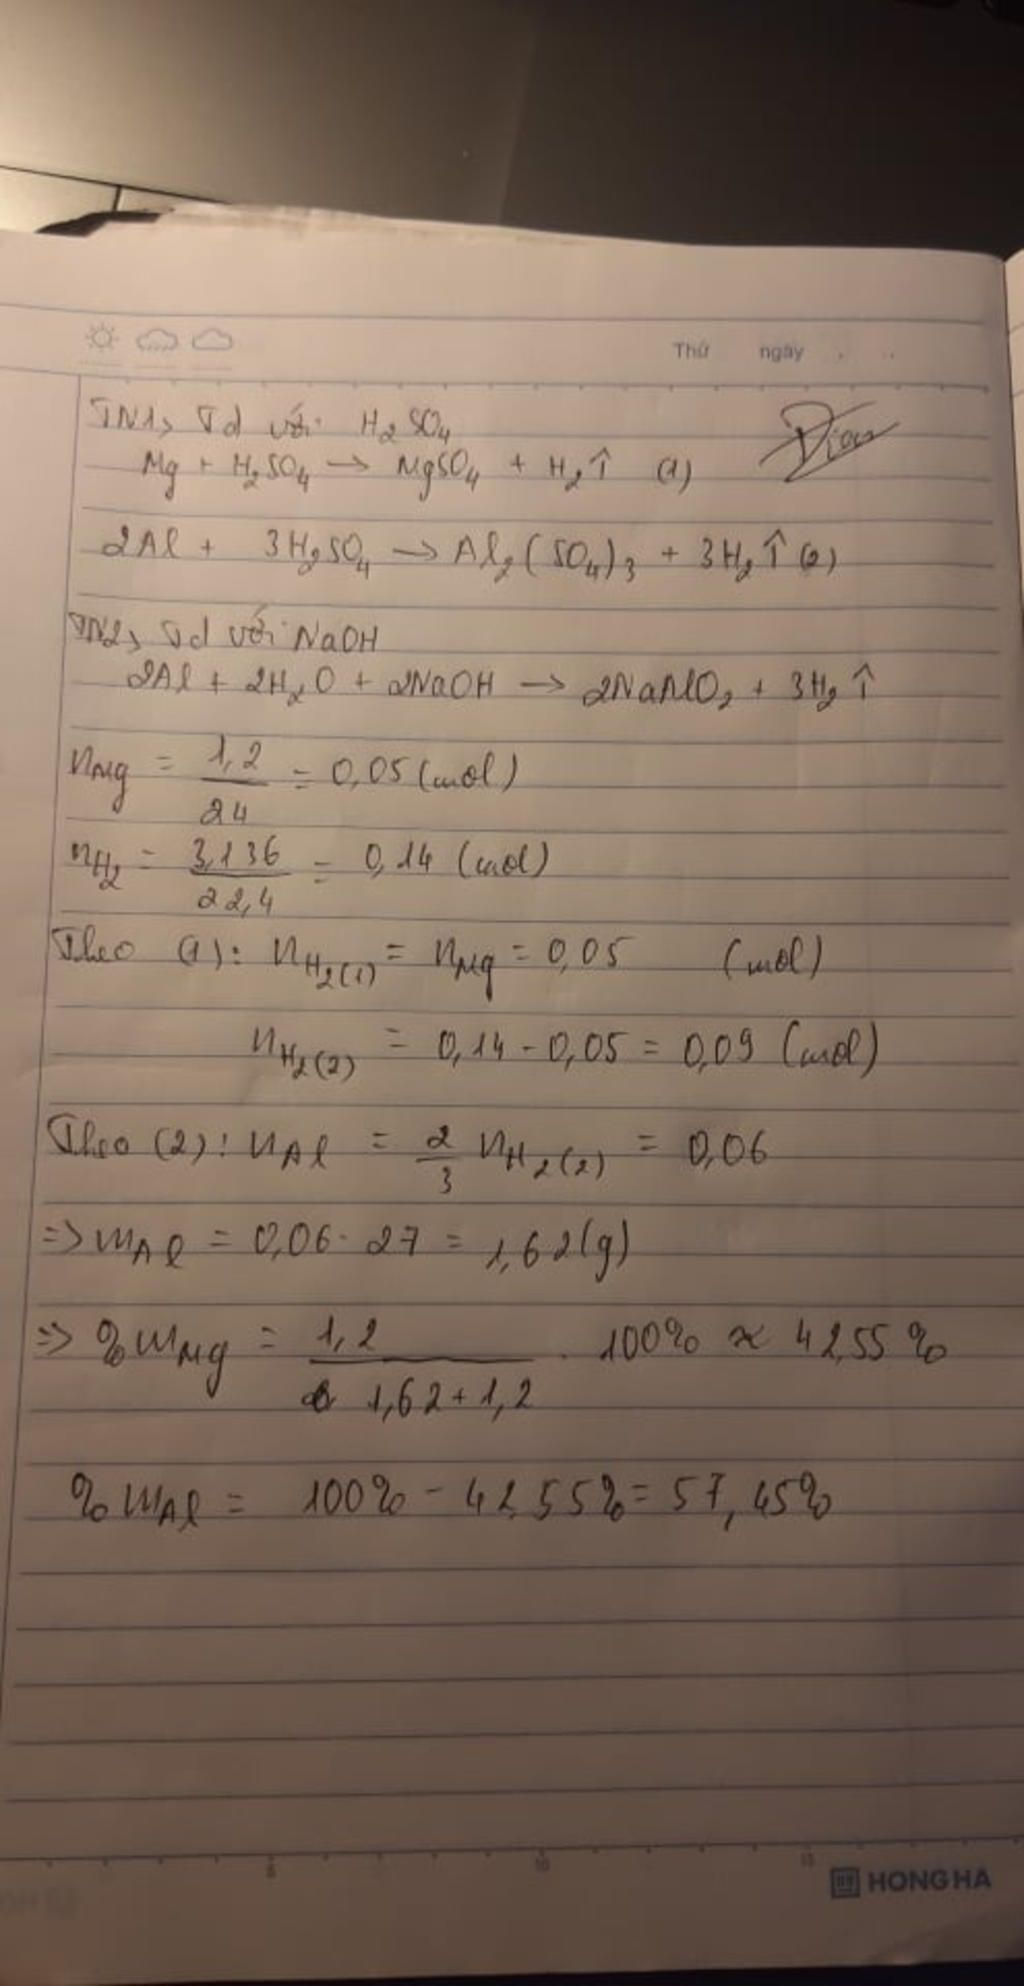 Thứ ngày . ..
TN1, Td với H2SO4
Mg + H2SO4 → MgSO4 + H2↑ (1)
2Al + 3H2SO4 → Al2(SO4)3 + 3H2↑ (2)
TN2, Td với NaOH
2Al + 2H2O + 2NaOH → 2NaAlO2 + 3H2↑
nMg = 1,2/24 = 0,05 (mol)
nH2 = 3,136/22,4 = 0,14 (mol)
Theo (1): nH2(1) = nMg = 0,05 (mol)
nH2(2) = 0,14 - 0,05 = 0,09 (mol)
Theo (2): nAl = 2/3 nH2(2) = 0,06
=> mAl = 0,06 . 27 = 1,62 (g)
=> %mMg = 1,2/1,62+1,2 . 100% ≈ 42,55%
%mAl = 100% - 42,55% = 57,45%
5 10 15
HONG HA